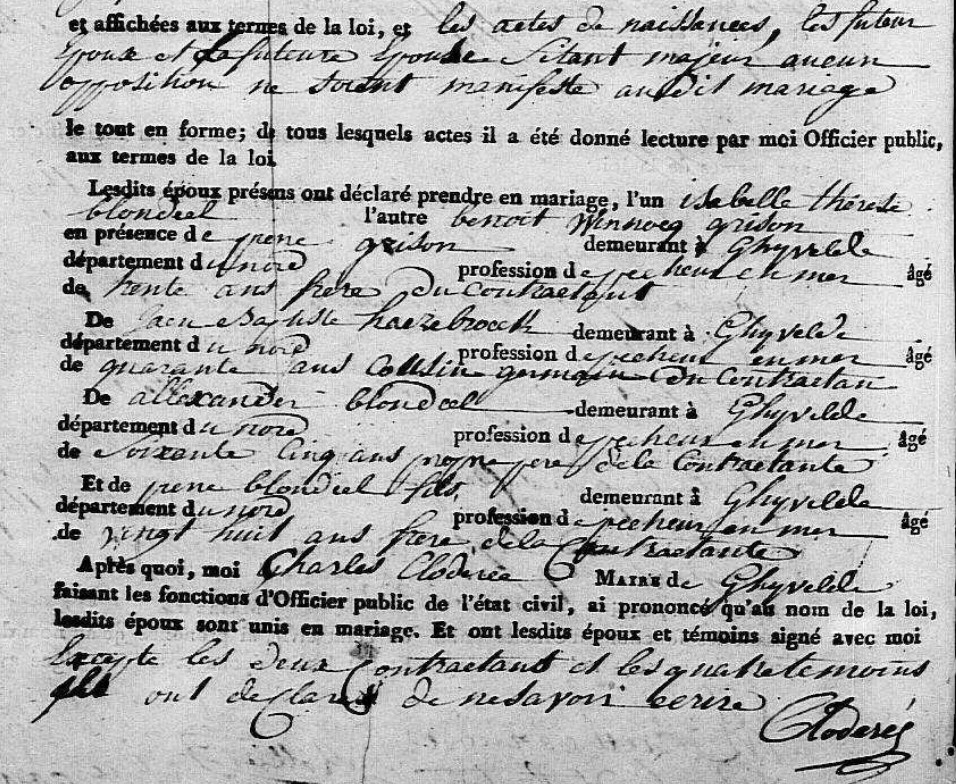 et affichées aux termes de la loi, et les actes de naissances, les futeur
Epoux et La futeure Epouse Etant majeur aucun
opposition ne soient manifeste audit mariage
le tout en forme; de tous lesquels actes il a été donné lecture par moi Officier public,
aux termes de la loi
Lesdits époux présens ont déclaré prendre en mariage, l'un isabelle therese
blondeel l'autre benoit Winnocq grison
en présence de pierre grison demeurant à Ghyvelde
département du nord profession de pecheur en mer âgé
de trente ans frere du contractant
De Jaen Baptiste hazebrouck demeurant à Ghyvelde
département du nord profession de pecheur en mer âgé
de quarante ans Cousin germain du contractan
De allexander blondeel demeurant à Ghyvelde
département du nord profession de pecheur en mer âgé
de Soixante Cinq ans propre pere de la Contractante
Et de pierre blondeel fils, demeurant à Ghyvelde
département du nord profession de pecheur en mer âgé
de vingt huit ans frere de la Contractante
Après quoi, moi Charles Cloderée MAIRE de Ghyvelde
faisant les fonctions d'Officier public de l'état civil, ai prononcé qu'au nom de la loi,
lesdits époux sont unis en mariage. Et ont lesdits époux et témoins signé avec moi
Excepte les deux Contractant et les quatre temoins
ont declaré de ne savoir ecrire
Cloderée